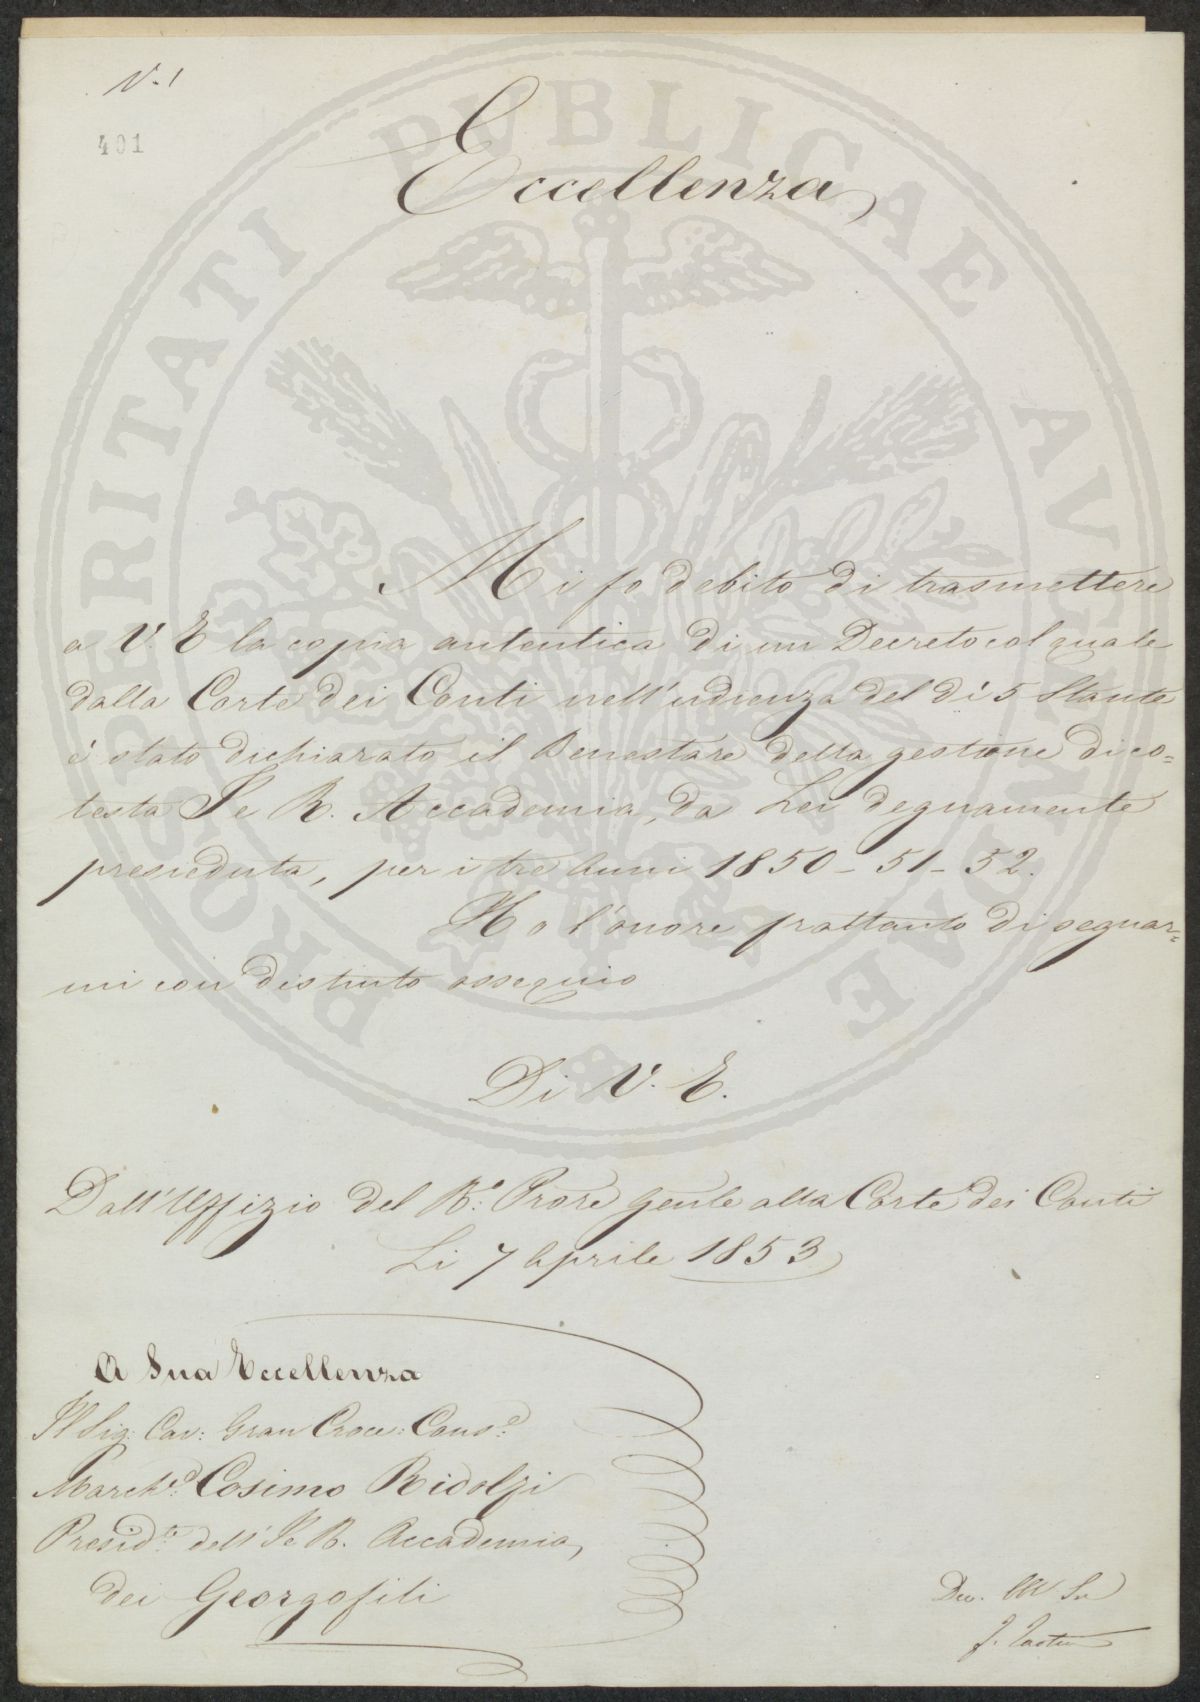 N. 1
401
Eccellenza
PROSPERITATI PUBLICAE AUGENDAE
Mi fo debito di trasmettere
a V. E la copia autentica di un Decreto col quale
dalla Corte dei Conti nell'udienza del dì 5 Stante
è stato dichiarato il Benestare della gestione di co=
testa I e R. Accademia, da Lei degnamente
presieduta, per i tre Anni 1850 - 51 - 52.
Ho l'onore frattanto di segnar=
mi con distinto ossequio
Di V. E.
Dall'Uffizio del R.º Prore Genle alla Corte dei Conti
Li 7 Aprile 1853
A Sua Eccellenza
Il Sig. Cav: Gran Croce: Cons.e
March.e Cosimo Ridolfi
Presid.te dell'I e R. Accademia
dei Georgofili
Dev.